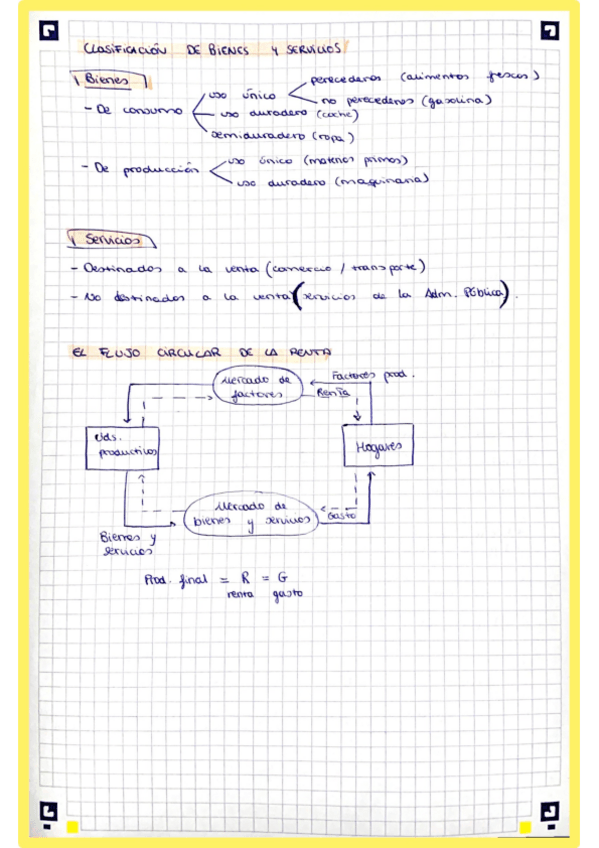 CLASIFICACIÓN DE BIENES Y SERVICIOS
Bienes
perecederos (alimentos frescos)
uso único
no perecederos (gasolina)
- De consumo
uso duradero (coche)
semiduradero (ropa)
uso único (materias primas)
- De producción
uso duradero (maquinaria)
Servicios
- Destinados a la venta (comercio / transporte)
- No destinados a la venta (servicios de la Adm. Pública).
EL FLUJO CIRCULAR DE LA RENTA
Mercado de factores
Factores prod.
Renta
Uds. productivas
Hogares
Mercado de bienes y servicios
Gasto
Bienes y servicios
Prod. final = R = G
renta gasto